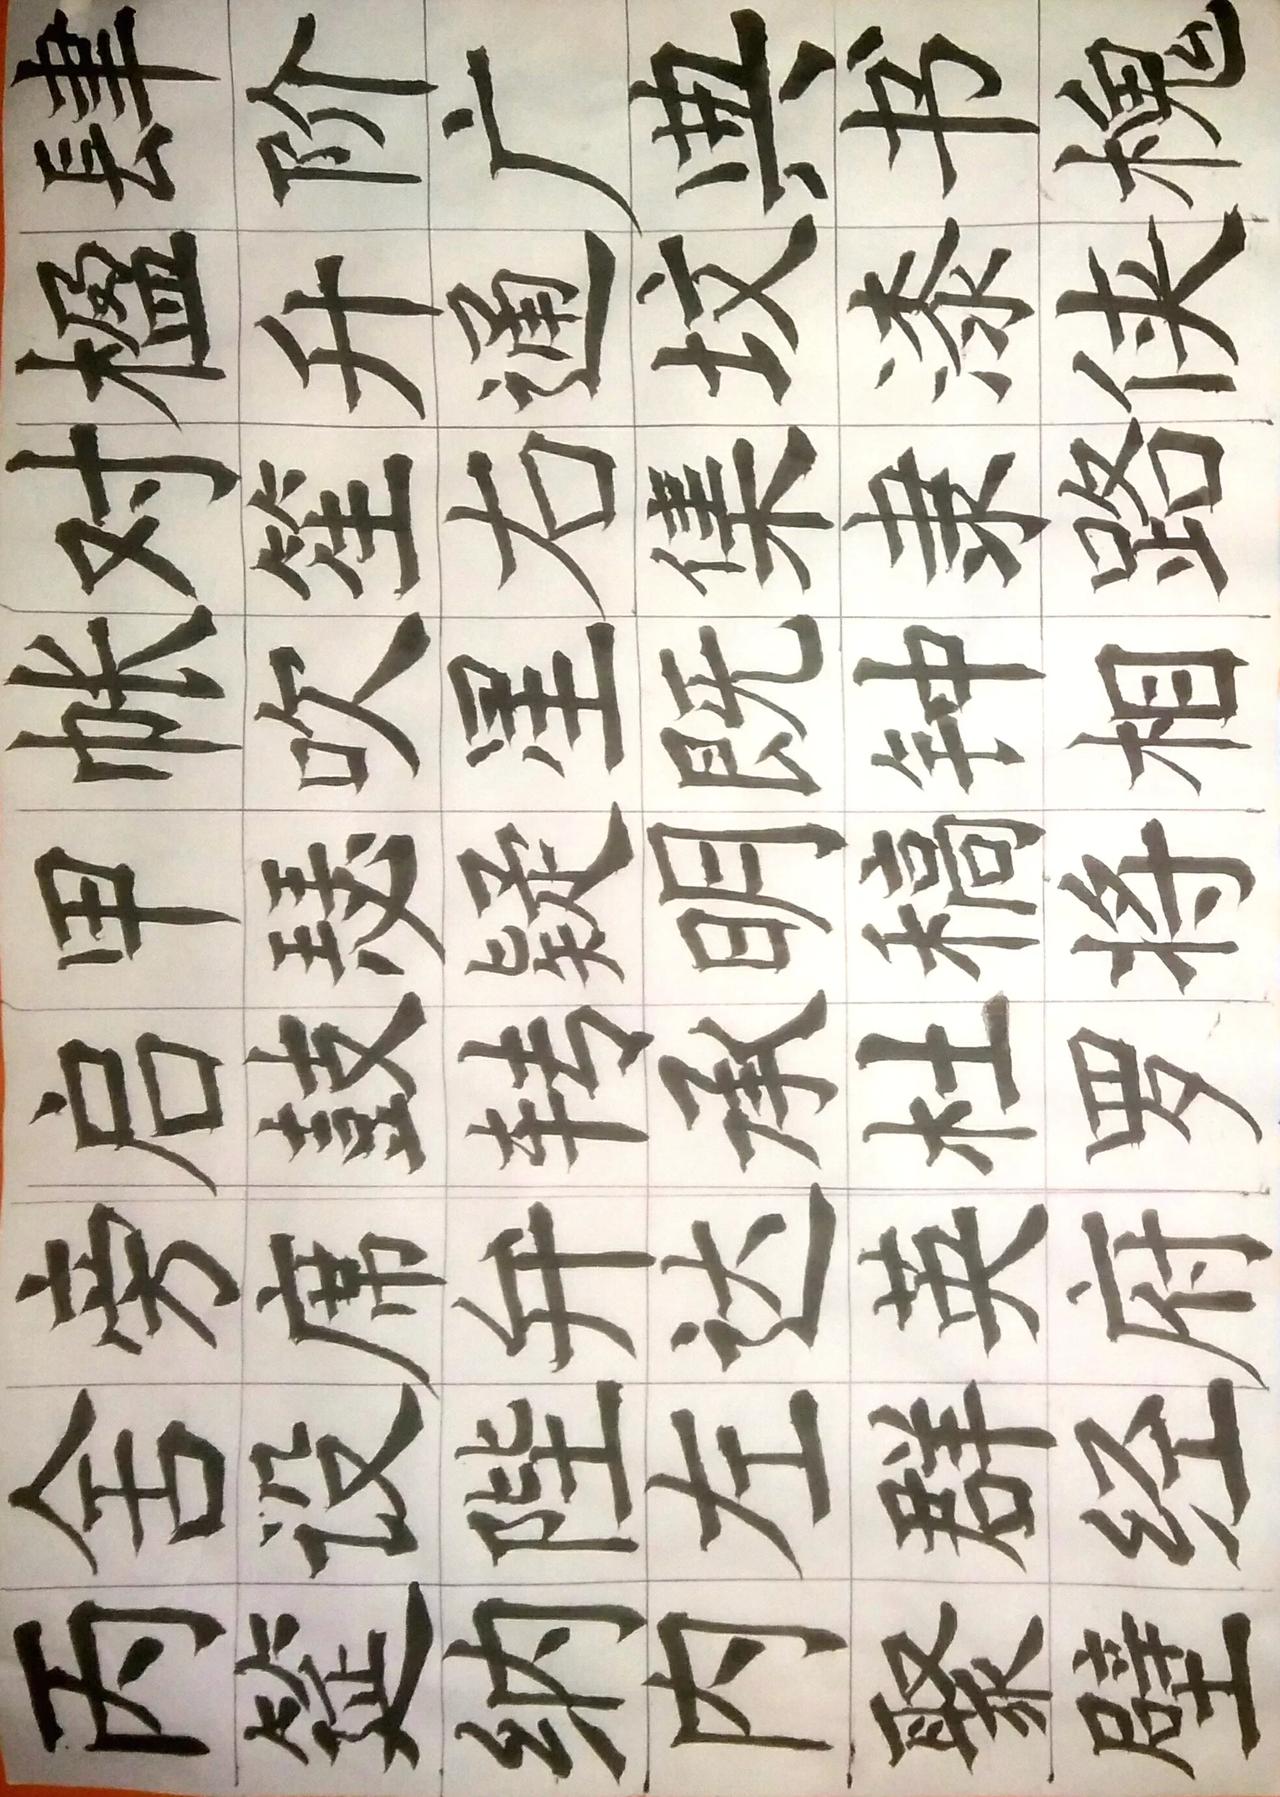 丙舍旁启甲帐对楹肆
筵设席鼓瑟吹笙升阶
纳陛弁转疑星右通广
内左达承明既集坟典
聚群英杜稿钟隶漆书
壁经府罗将相路侠槐